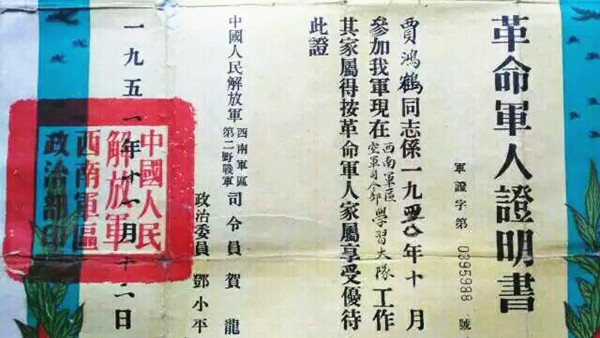 革命軍人證明書
軍證字第 0395988 號
賈鴻鶴同志係一九四八年十月
參加我軍現在西南軍區空軍司令部學習大隊工作
其家屬得按革命軍人家屬享受優待
此證
中國人民解放軍西南軍區第二野戰軍司令員賀龍
政治委員鄧小平
一九五一年十一月十二日
中國人民
解放軍
西南軍區
政治部印